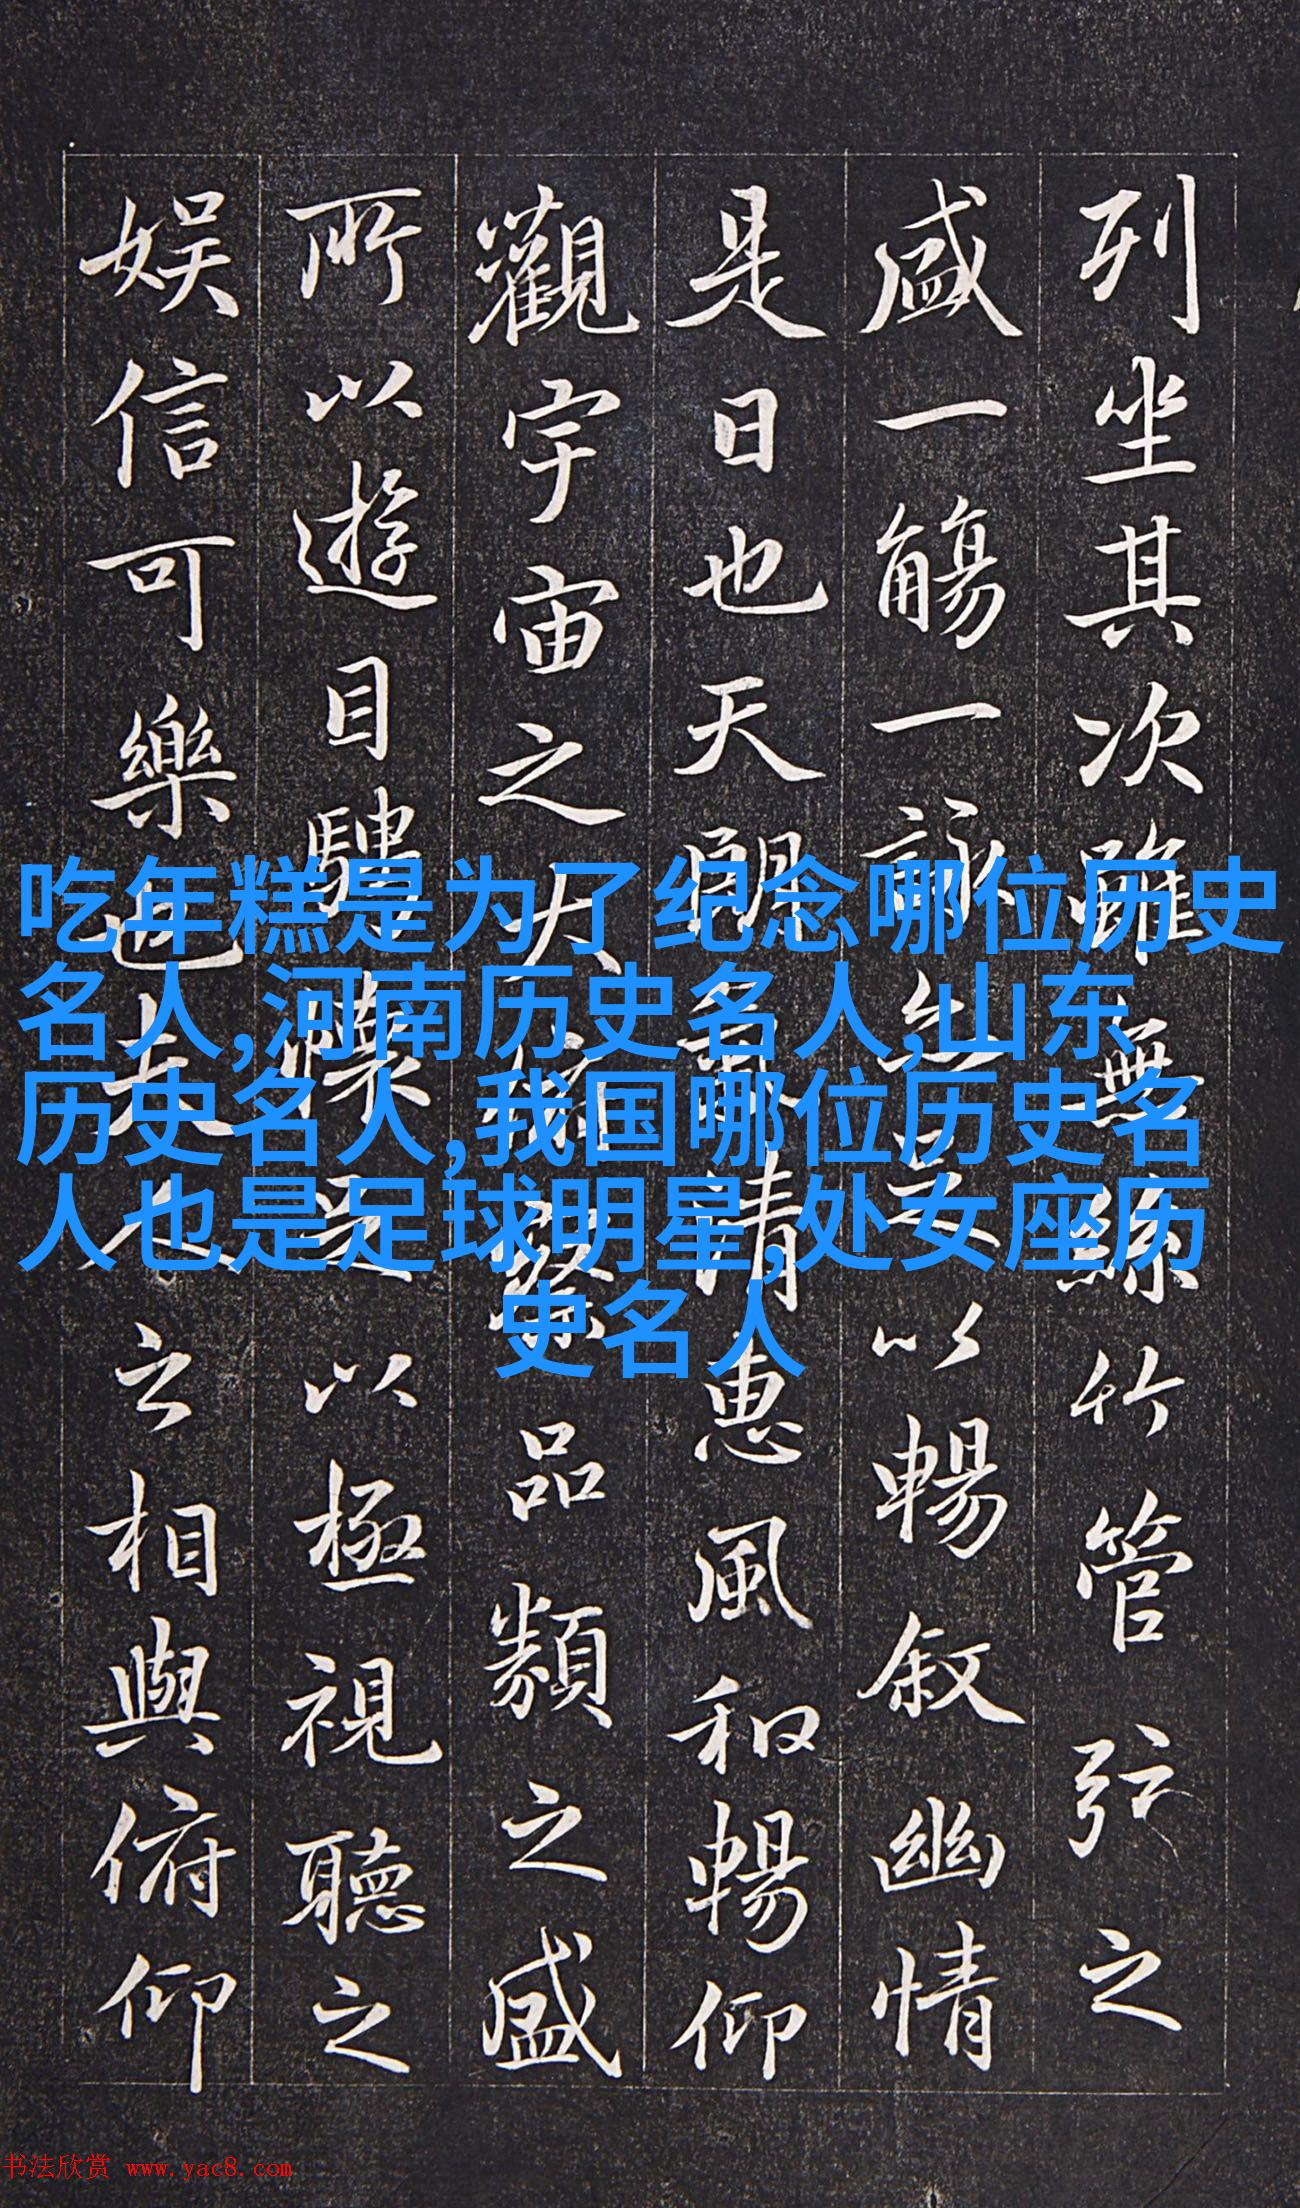 列坐其次雖無絲竹管弦之
盛一觴一詠亦足以暢叙幽情
是日也天朗氣清惠風和暢仰
觀宇宙之大俯察品類之盛
所以遊目騁懷足以極視聽之
娱信可樂也夫人之相與俯仰
吃年糕是为了纪念哪位历史
名人,河南历史名人,山东
历史名人,我国哪位历史名
人也是足球明星,处女座历
史名人
书法欣赏 www.yac8.com